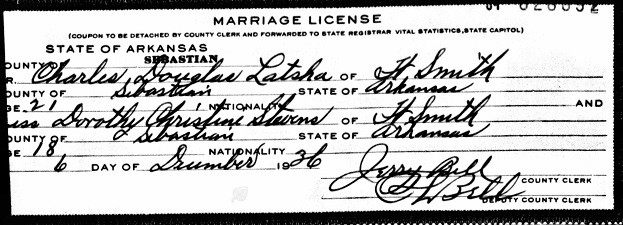 MARRIAGE LICENSE
(COUPON TO BE DETACHED BY COUNTY CLERK AND FORWARDED TO STATE REGISTRAR VITAL STATISTICS, STATE CAPITOL)
STATE OF ARKANSAS
OUNTY SEBASTIAN
R. Charles Douglas Latsha OF Ft Smith
OUNTY OF Sebastian STATE OF Arkansas
GE 21 NATIONALITY AND
iss Dorothy Christine Stevens OF Ft Smith
OUNTY OF Sebastian STATE OF Arkansas
GE 18 NATIONALITY
6 DAY OF December 1936
Jerry Bell COUNTY CLERK
Bell DEPUTY COUNTY CLERK